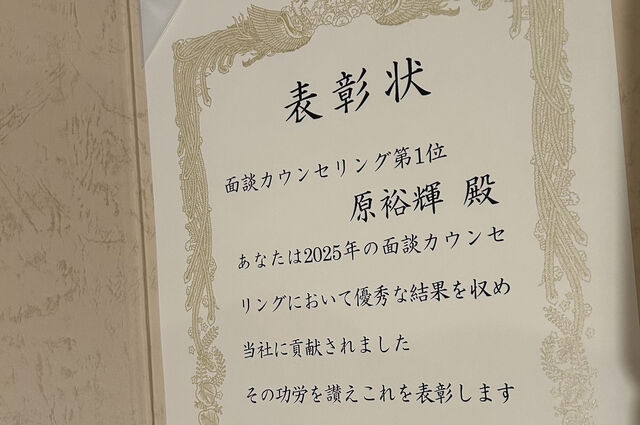 表彰状
面談カウンセリング第1位
原裕輝 殿
あなたは2025年の面談カウンセ
リングにおいて優秀な結果を収め
当社に貢献されました
その功労を讃えこれを表彰します